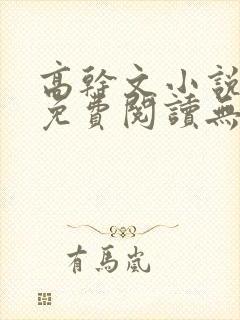 高幹文小說
免費閱讀無
有馬嵐